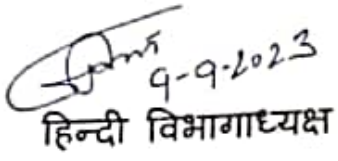 9-9-2023
हिन्दी विभागाध्यक्ष